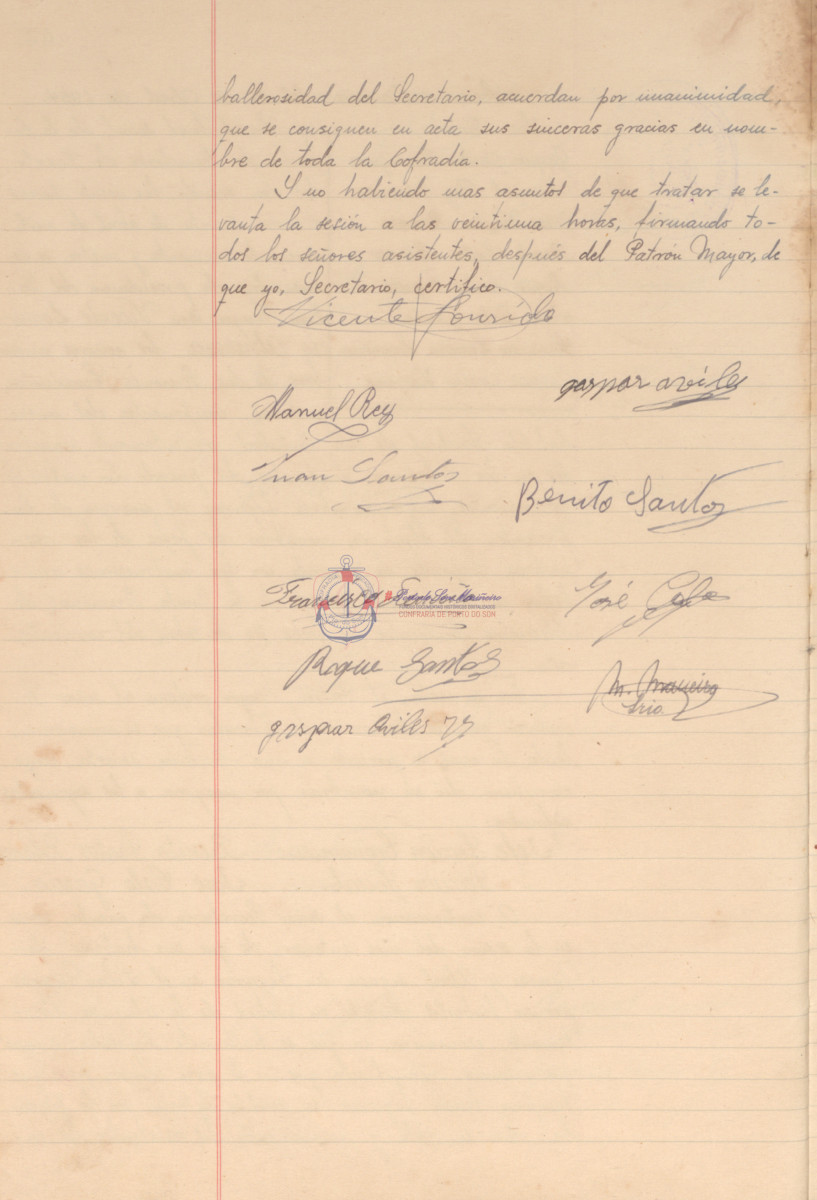 ballerosidad del Secretario, acuerdan por unanimidad,
que se consignen en acta sus sinceras gracias en nom-
bre de toda la Cofradía.
Y no habiendo mas asuntos de que tratar se le-
vanta la sesión a las veintiuna horas, firmando to-
dos los señores asistentes, después del Patrón Mayor, de
que yo, Secretario, certifico.
Vicente Lourido
gaspar aviles
Manuel Rey
Juan Santos
Benito Santos
Francisco
José
CONFRARÍA DE PORTO DO SON
Roque Santos
M. Maneiro
Srio
gaspar Aviles